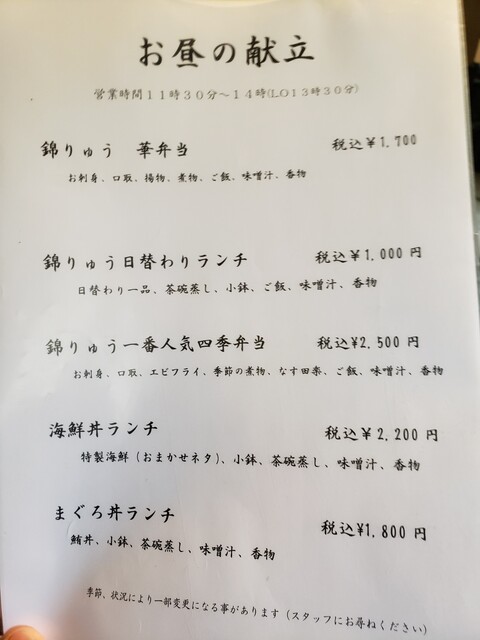 お昼の献立
営業時間11時30分～14時(LO13時30分)
錦りゅう　華弁当　税込¥1,700
お刺身、口取、揚物、煮物、ご飯、味噌汁、香物
錦りゅう日替わりランチ　税込¥1,000円
日替わり一品、茶碗蒸し、小鉢、ご飯、味噌汁、香物
錦りゅう一番人気四季弁当　税込¥2,500円
お刺身、口取、エビフライ、季節の煮物、なす田楽、ご飯、味噌汁、香物
海鮮丼ランチ　税込¥2,200円
特製海鮮(おまかせネタ)、小鉢、茶碗蒸し、味噌汁、香物
まぐろ丼ランチ　税込¥1,800円
鮪丼、小鉢、茶碗蒸し、味噌汁、香物
季節、状況により一部変更になる事があります(スタッフにお尋ねください)